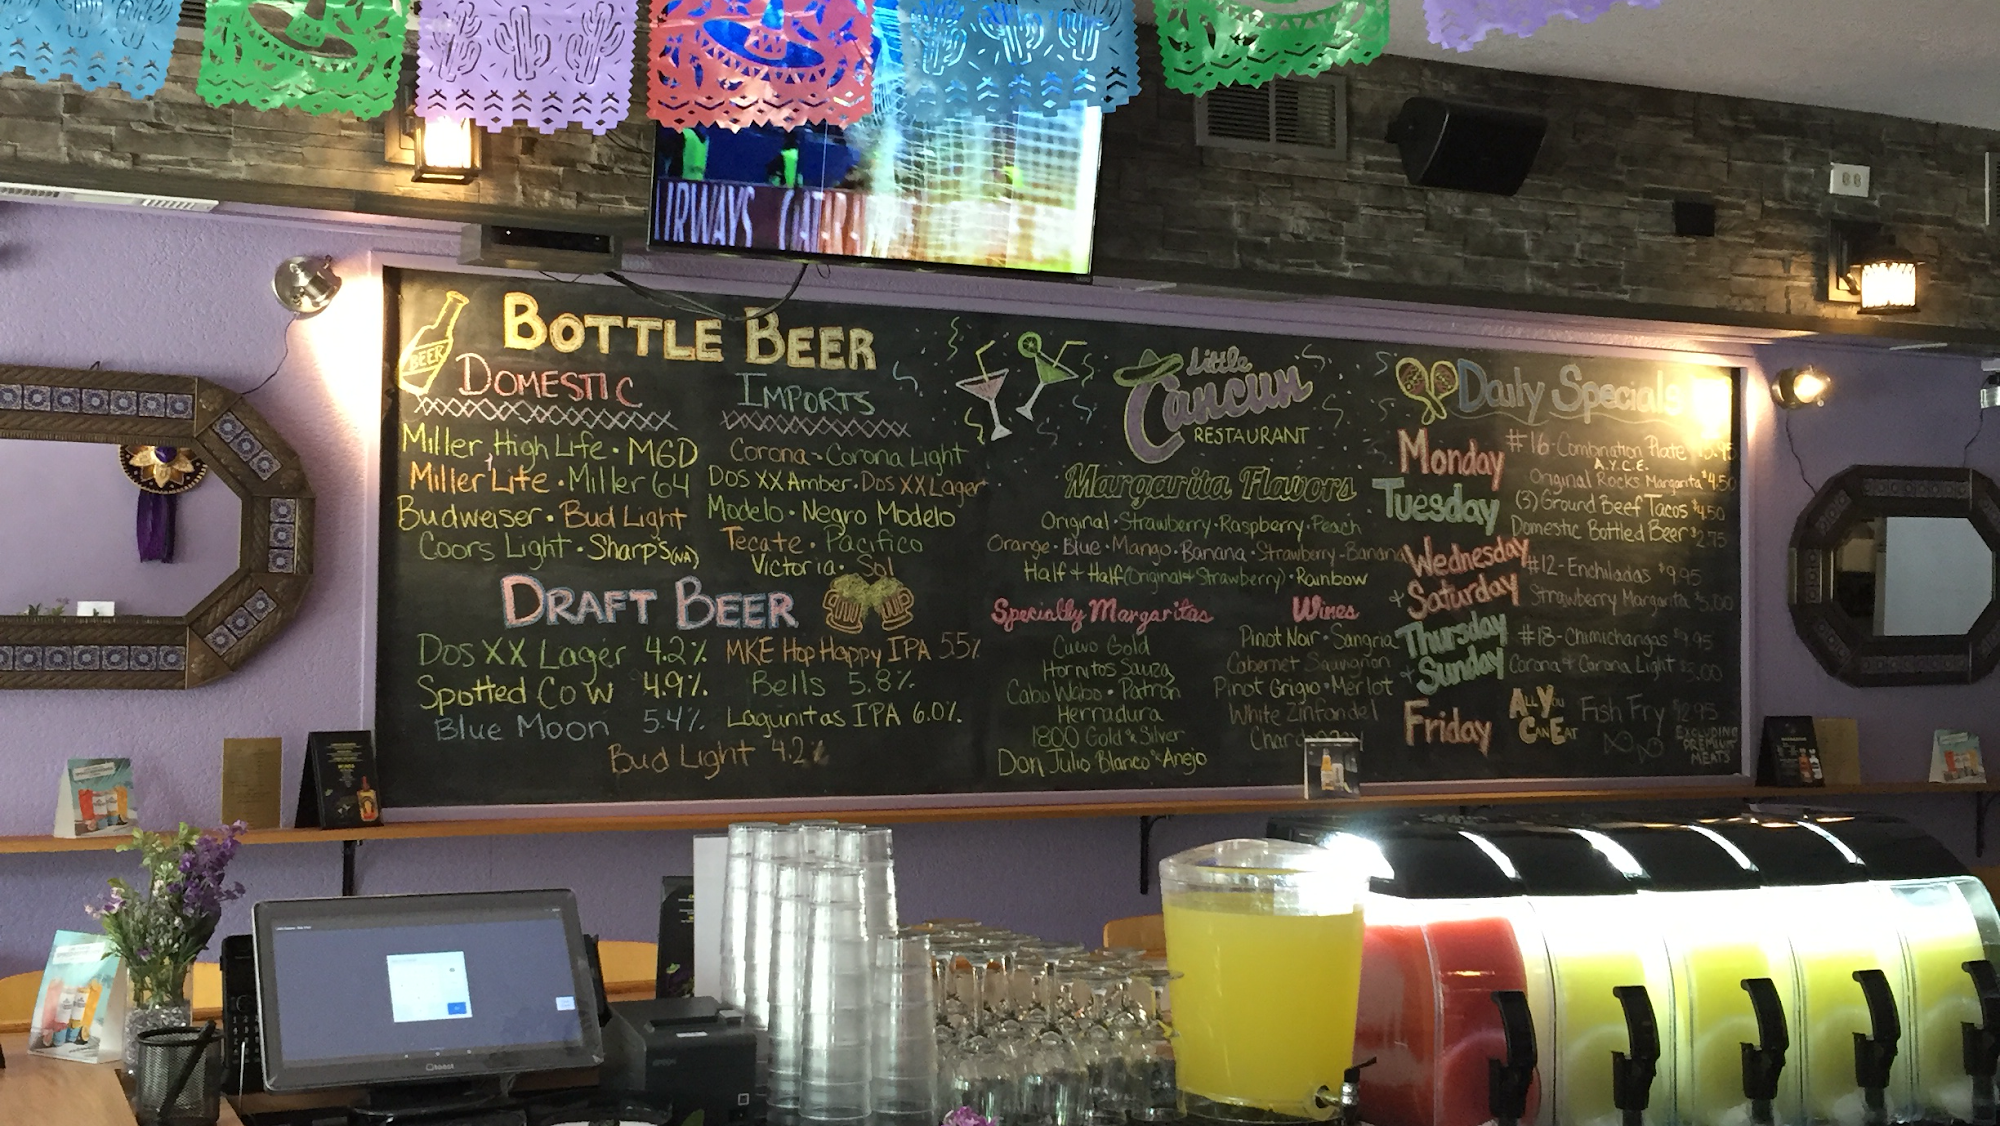 IRWAYS QATAR
BOTTLE BEER
BEER
DOMESTIC
Miller High Life · MGD
Miller Lite · Miller 64
Budweiser · Bud Light
Coors Light · Sharp's (NA)
IMPORTS
Corona · Corona Light
Dos XX Amber · Dos XX Lager
Modelo · Negro Modelo
Tecate · Pacifico
Victoria · Sol
DRAFT BEER
Dos XX Lager 4.2%
Spotted Cow 4.9%
Blue Moon 5.4%
MKE Hop Happy IPA 5.5%
Bells 5.8%
Lagunitas IPA 6.0%
Bud Light 4.2%
Little
Cancun
RESTAURANT
Margarita Flavors
Original · Strawberry · Raspberry · Peach
Orange · Blue · Mango · Banana · Strawberry-Banana
Half + Half (Original + Strawberry) · Rainbow
Specialty Margaritas
Cuervo Gold
Hornitos Sauza
Cabo Wabo · Patrón
Herradura
1800 Gold & Silver
Don Julio Blanco & Anejo
Wines
Pinot Noir · Sangria
Cabernet Sauvignon
Pinot Grigio · Merlot
White Zinfandel
Daily Specials
Monday
#16-Combination Plate
A.Y.C.E.
Original Rocks Margarita $4.50
Tuesday
(3) Ground Beef Tacos $4.50
Domestic Bottled Beer $2.75
Wednesday
+ Saturday
#12-Enchiladas $9.95
Strawberry Margarita $5.00
Thursday
+ Sunday
#18-Chimichangas $9.95
Corona & Corona Light $3.00
Friday
ALL YOU
CAN EAT
Fish Fry
EXCLUDING
PREMIUM
MEATS
toast